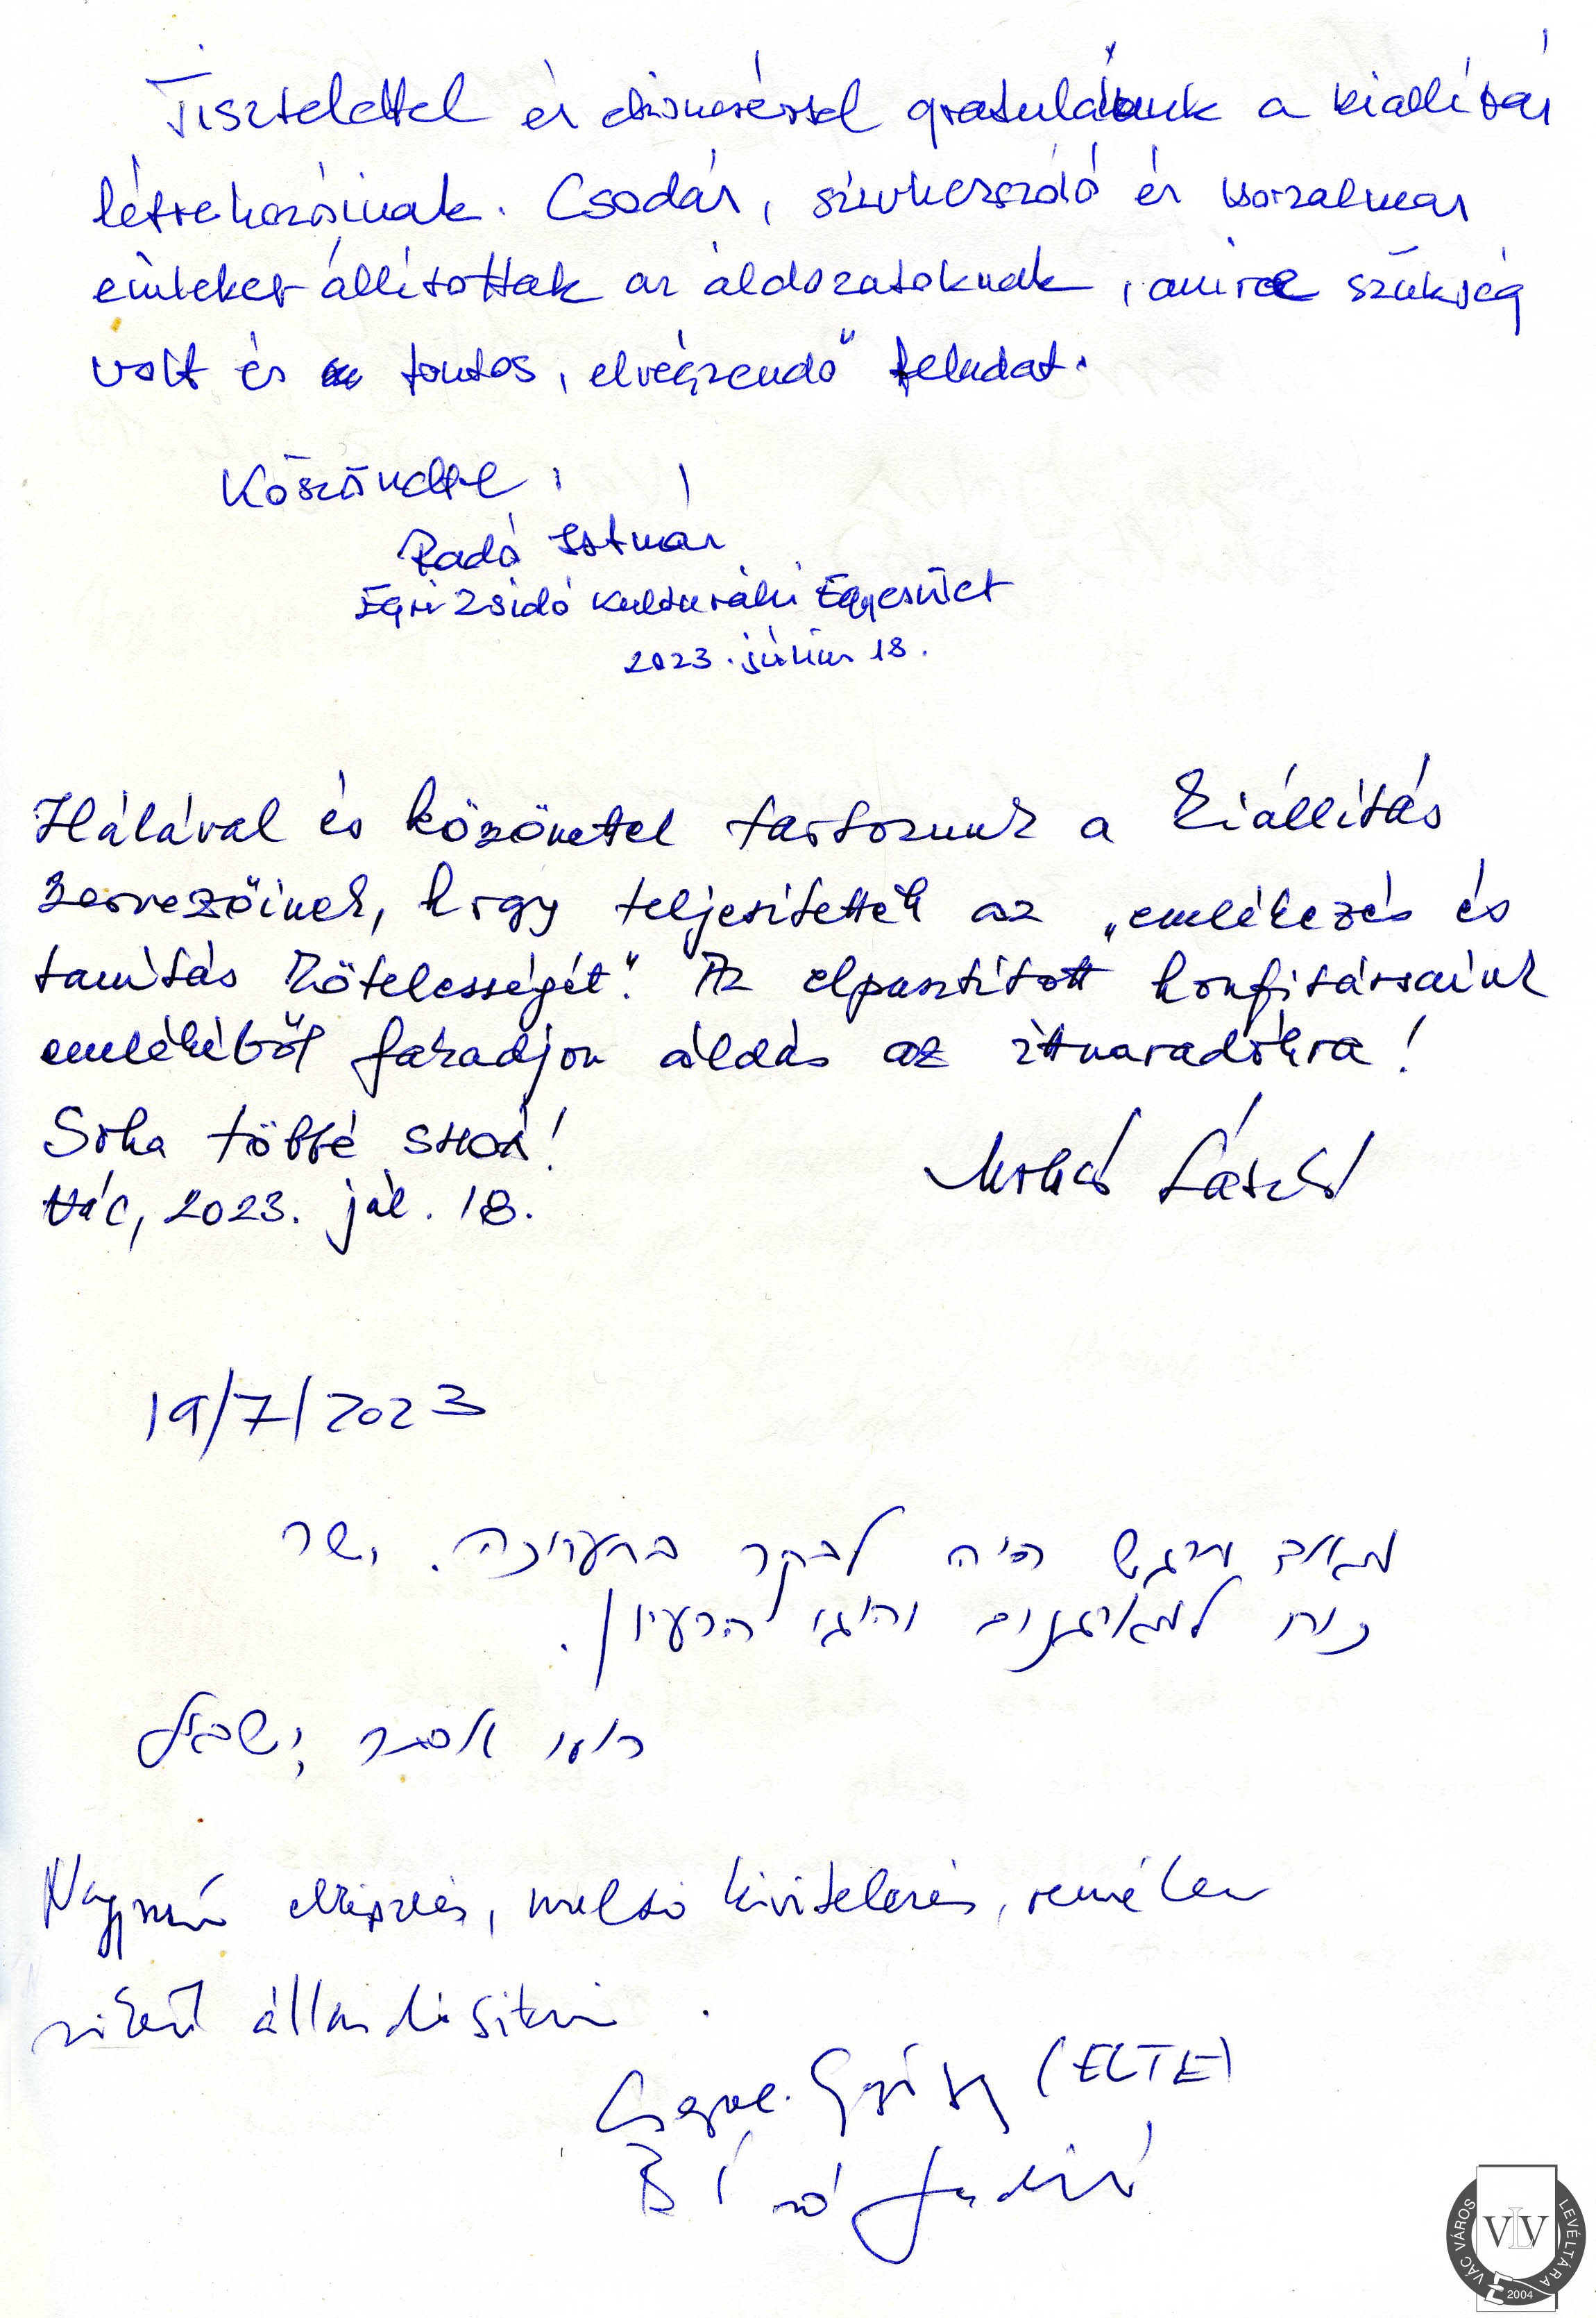 Tisztelettel és elismeréssel gratulálunk a kiállítás
létrehozóinak. Csodás, szívhezszóló és borzalmas
emléket állítottak az áldozatoknak, amire szükség
volt és fontos, elvégzendő" feladat.
Köszönettel:
Radó István
Egri Zsidó Kulturális Egyesület
2023. július 18.
Hálával és köszönettel tartozunk a Kiállítás
szervezőinek, hogy teljesítették az „emlékezés és
tanítás kötelességét". Az elpusztított honfitársaink
emlékéből fakadjon áldás az ittmaradókra!
Soha többé SHOÁ!
Vác, 2023. júl. 18.
László
19/7/2023
מאוד מרגש היה לבקר בתערוכה. ישר
כוח למארגנים והוגי הרעיון.
רועי אסנר ישראל
Nagyszerű elképzelés, méltó kivitelezés, remélem
sikerül állandósítani.
György (ELTE)
Bíró Judit
VÁC VÁROS LEVÉLTÁRA
VLV
2004